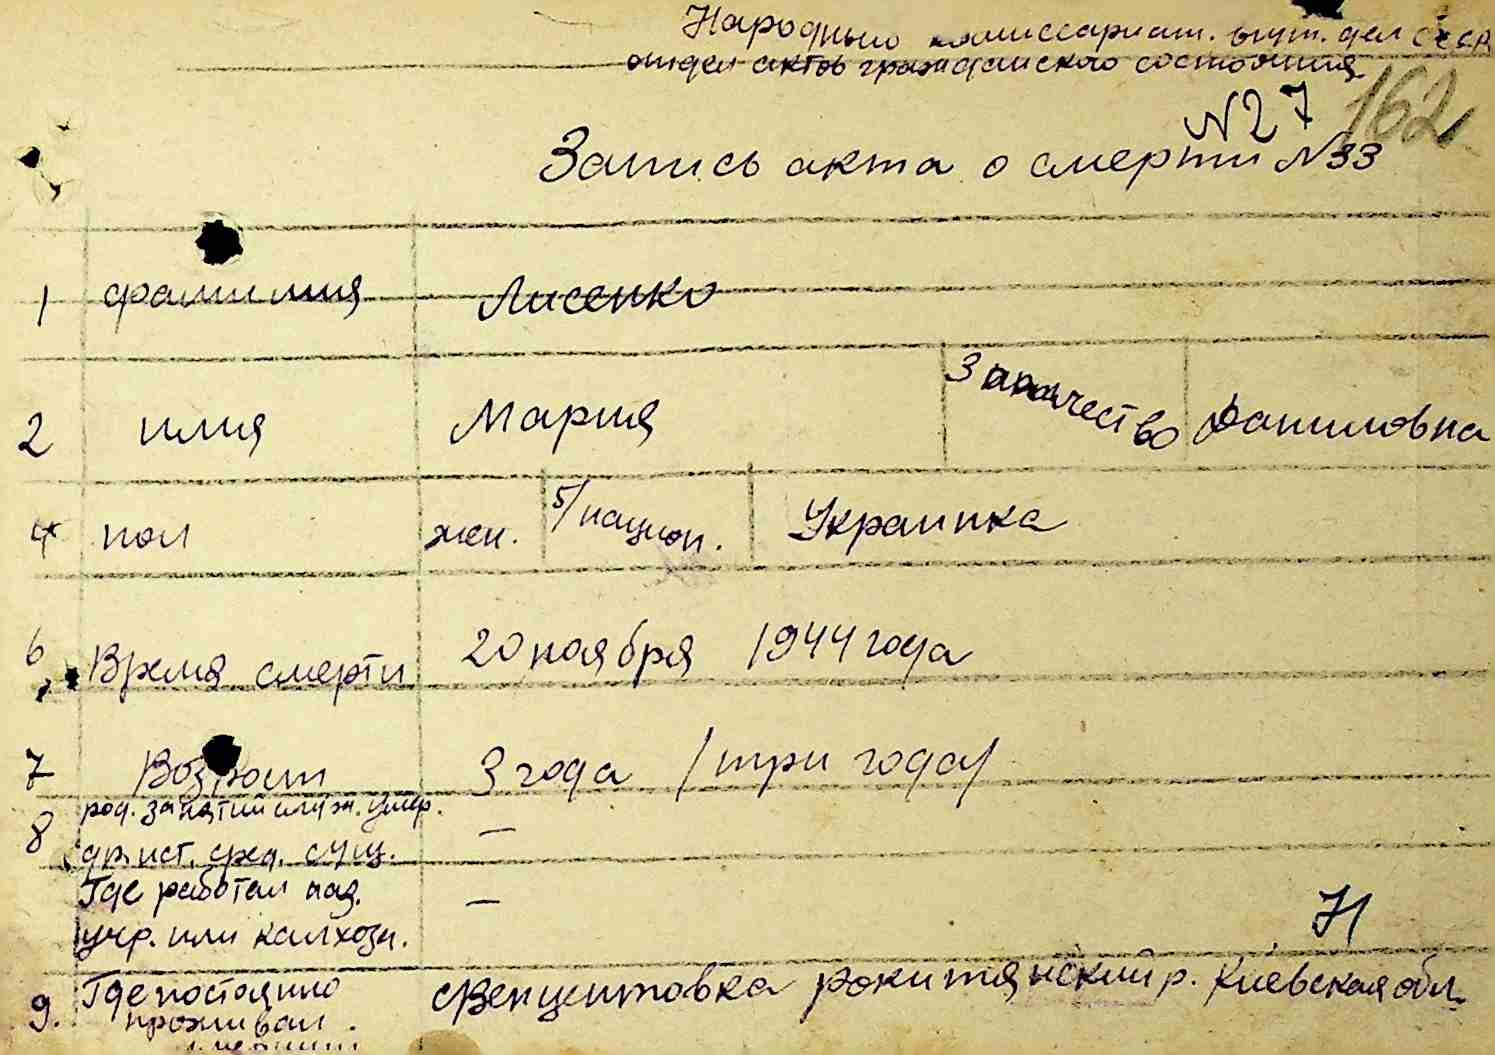 Народный комиссариат. внут. дел СССР
отдел актов гражданского состояния
162
N27
Запись акта о смерти N33
1 фамилия Лисенко
2 имя Мария 3 отчество Даниловна
4 пол жен. 5/ национ. Украинка
6 Время смерти 20 ноября 1944 года
7 Возраст 3 года /три года/
8 род. занятий служ. умер. —
др. ист. сред. сущ.
Где работал наз. —
учр. или калхозн.
Н
9. Где постоянно Свенцитовка Рокитянский р. Киевская обл.
проживал